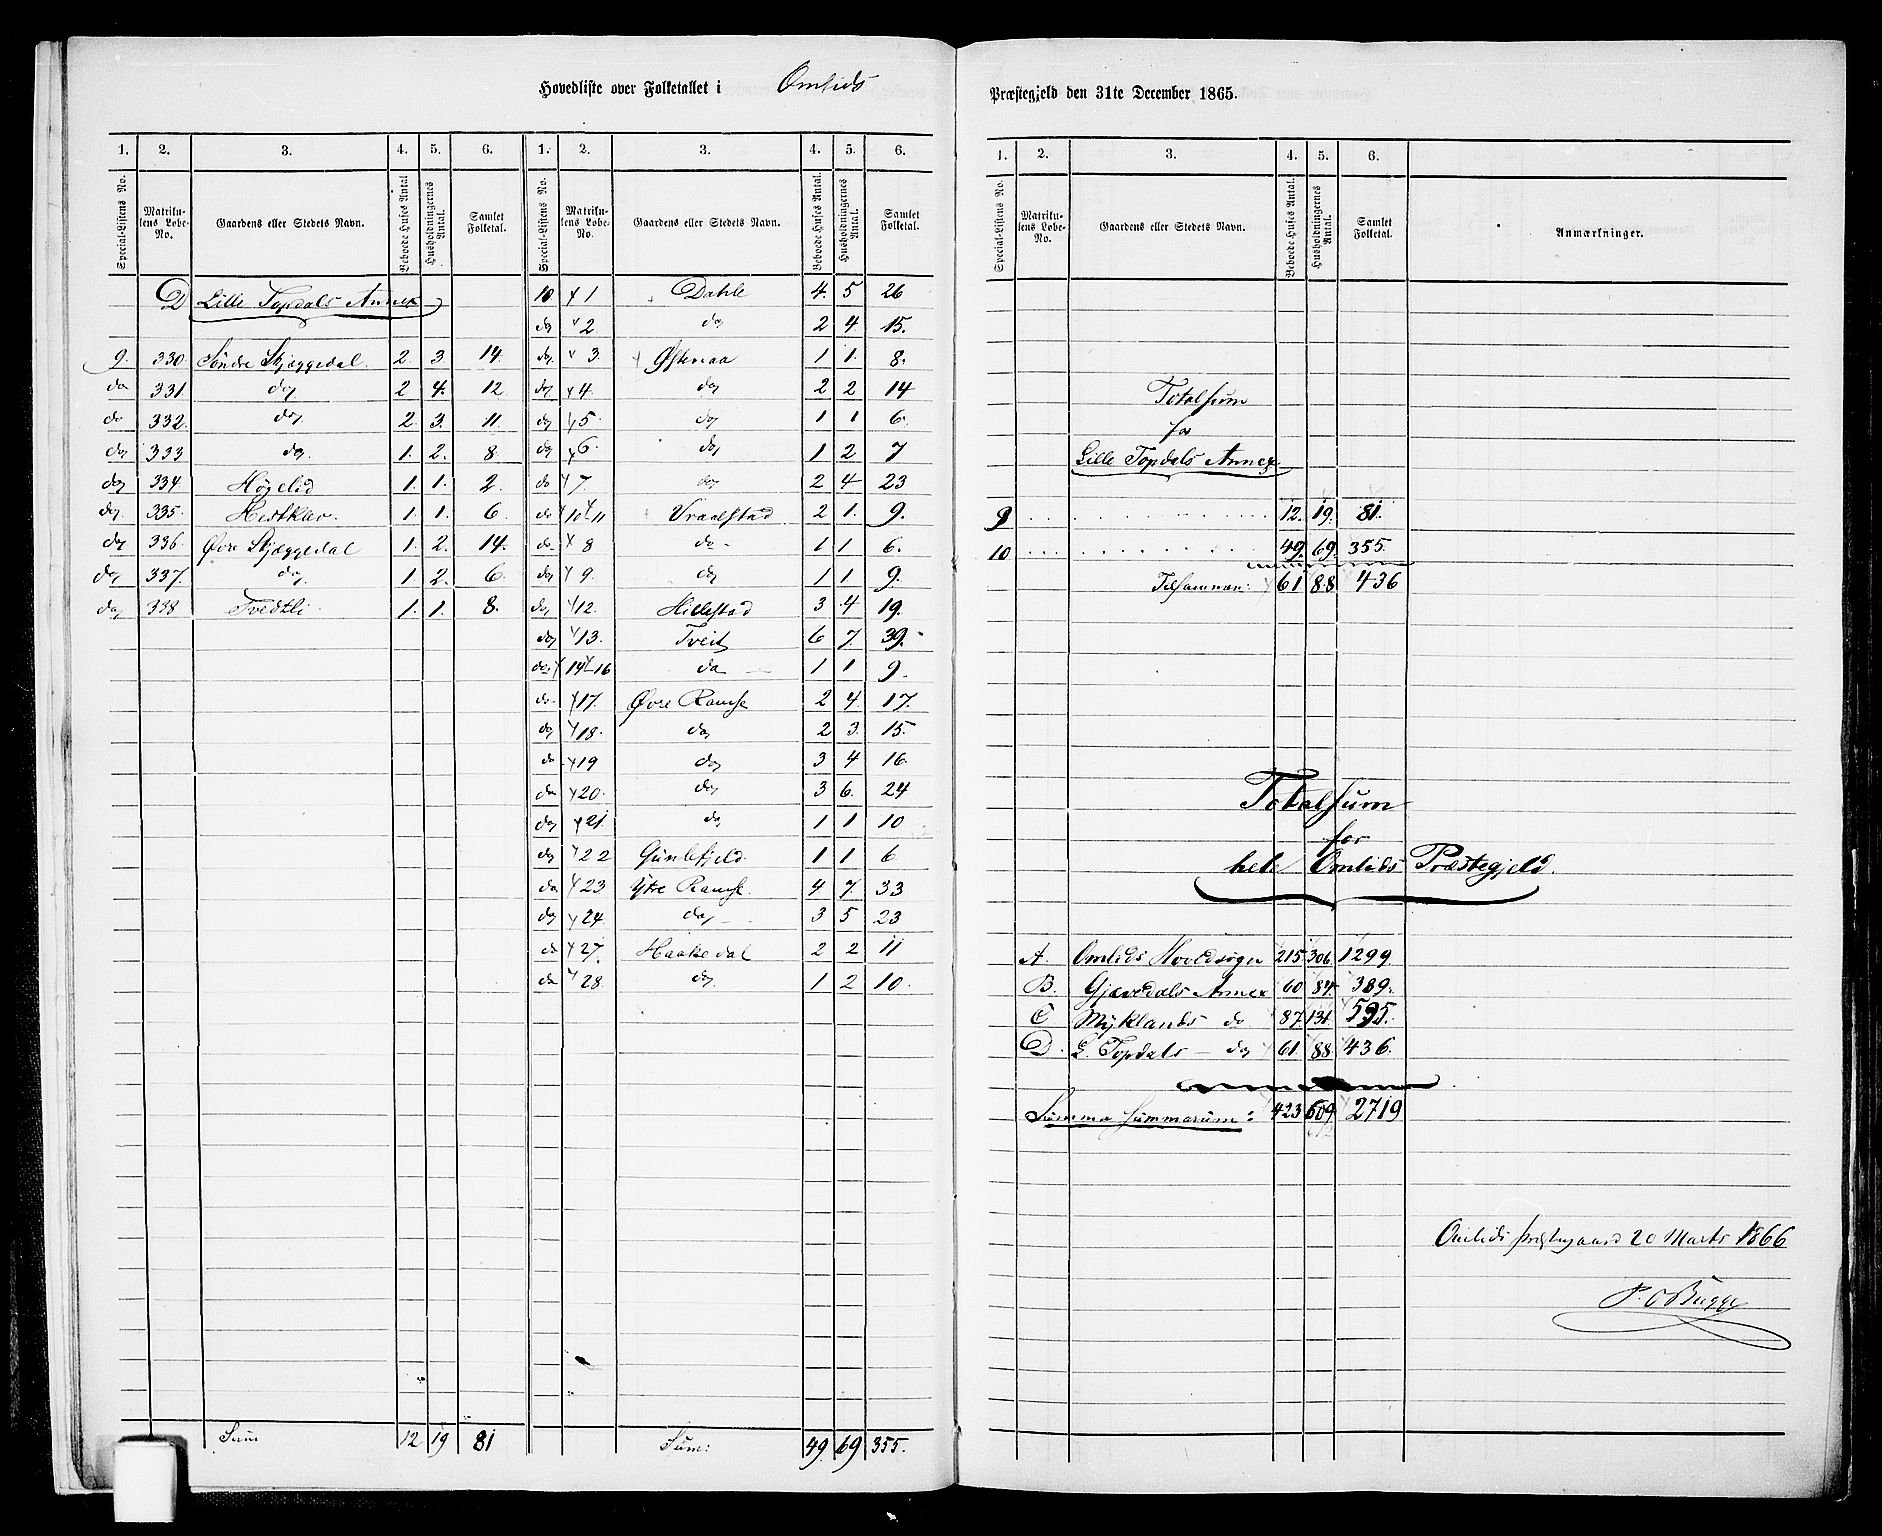 Hovedliste over Folketallet i Omlids Præstegjeld den 31te December 1865.
1. 2. 3. 4. 5. 6. 1. 2. 3. 4. 5. 6.
Special-Listens No. Matrikulens Løbe-No. Gaardens eller Stedets Navn. Beboede Huses Antal Husholdningernes Antal. Samlet Folketal. Special-Listens No. Matrikulens Løbe-No. Gaardens eller Stedets Navn. Beboede Huses Antal. Husholdningernes Antal. Samlet Folketal.
D Lille Topdals Annex
9. 330 Søndre Skjeggedal. 2. 3. 14.
do 331. do 2 4. 12.
do 332. do 2. 3. 11.
do 333 do. 1. 2. 8.
do 334. Høgelid 1. 1. 2.
do. 335. Hestklev. 1. 1. 6.
do 336. Øvre Skjæggedal 1. 2. 14.
do 337. do. 1. 2. 6.
do 338 Tvedtli. 1. 1. 8.
Sum 12 19 81
10 1 Dahle 4. 5 26
do 2. do 2 4. 15.
do. 3. Østenaa 1 1. 8.
do 4. do 2 2 14
do 5. do 1 1 6.
do 6. do 1 2 7
do 7. do 2 4 23
do 10-11 Vraalstad 2 1. 9.
do. 8 do- 1 1 6.
do 9. do 1 1 9.
do 12. Hillestad 3 4 19.
do 13. Tveit 6 7. 39.
do 14-16 do 1 1 9.
do. 17. Øvre Ramse 2 4. 17.
do 18. do 2 3. 15.
do. 19 do 3 4 16.
do 20. do 3 6. 24
do 21. do 1 1 10
do 22 Gunlefjeld. 1 1 6
do 23 Ytre Ramse. 4 7. 33
do 24. do 3 5 23
do 27. Haakedal 2 2 11
do 28. do. 1 2 10.
Sum: 49. 69 355.
1. 2. 3. 4. 5. 6.
Special-Listens No. Matrikulens Løbe-No. Gaardens eller Stedets Navn. Beboede Huses Antal. Husholdningernes Antal. Samlet Folketal. Anmærkninger.
Totalsum
for
Lille Topdals Annex
9 12. 19. 81.
10 49. 69. 355.
Tilsammen: 61 88 436
Totalsum
for
hele Omlids Præstegjeld.
A. Omlids Hovedsogn 215. 306. 1299.
B. Gjævedals Annex 60 84. 389.
C Myklands do 87. 131. 595.
D. L. Topdals - do 61. 88. 436.
Summa Summarum: 423 609. 2719
Omlids Præstegaard 20 Marts 1866
P. O Bugge